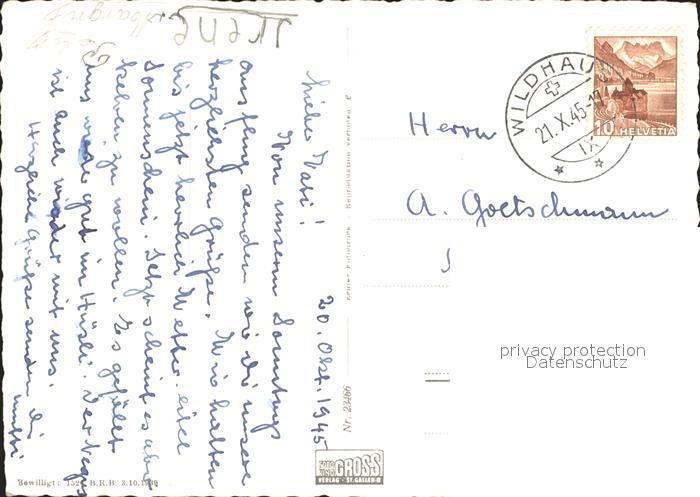 Irene
Margrit
20. Okt. 1945
Lieber Vati!
Von unserm Sonntags
ausflug senden wir dir unsere
herzlichsten Grüße. Wir hatten
bis jetzt herrlich Wetter. eitel
Sonnenschein. Jetzt scheint es aber
kehren zu wollen. Es gefällt
uns gut im Hüsli. Der Regen
ist auch wieder mit uns.
Herzliche Grüße senden dir
mutti
Herrn
A. Goetschmann
WILDHAUS
21. X. 45-17
IX
10 HELVETIA
privacy protection
Datenschutz
Reproduktion verboten
Nr. 23466
FOTO
GROSS
VERLAG - ST. GALLEN-O
Bewilligt: B.R.B. 3.10.1939